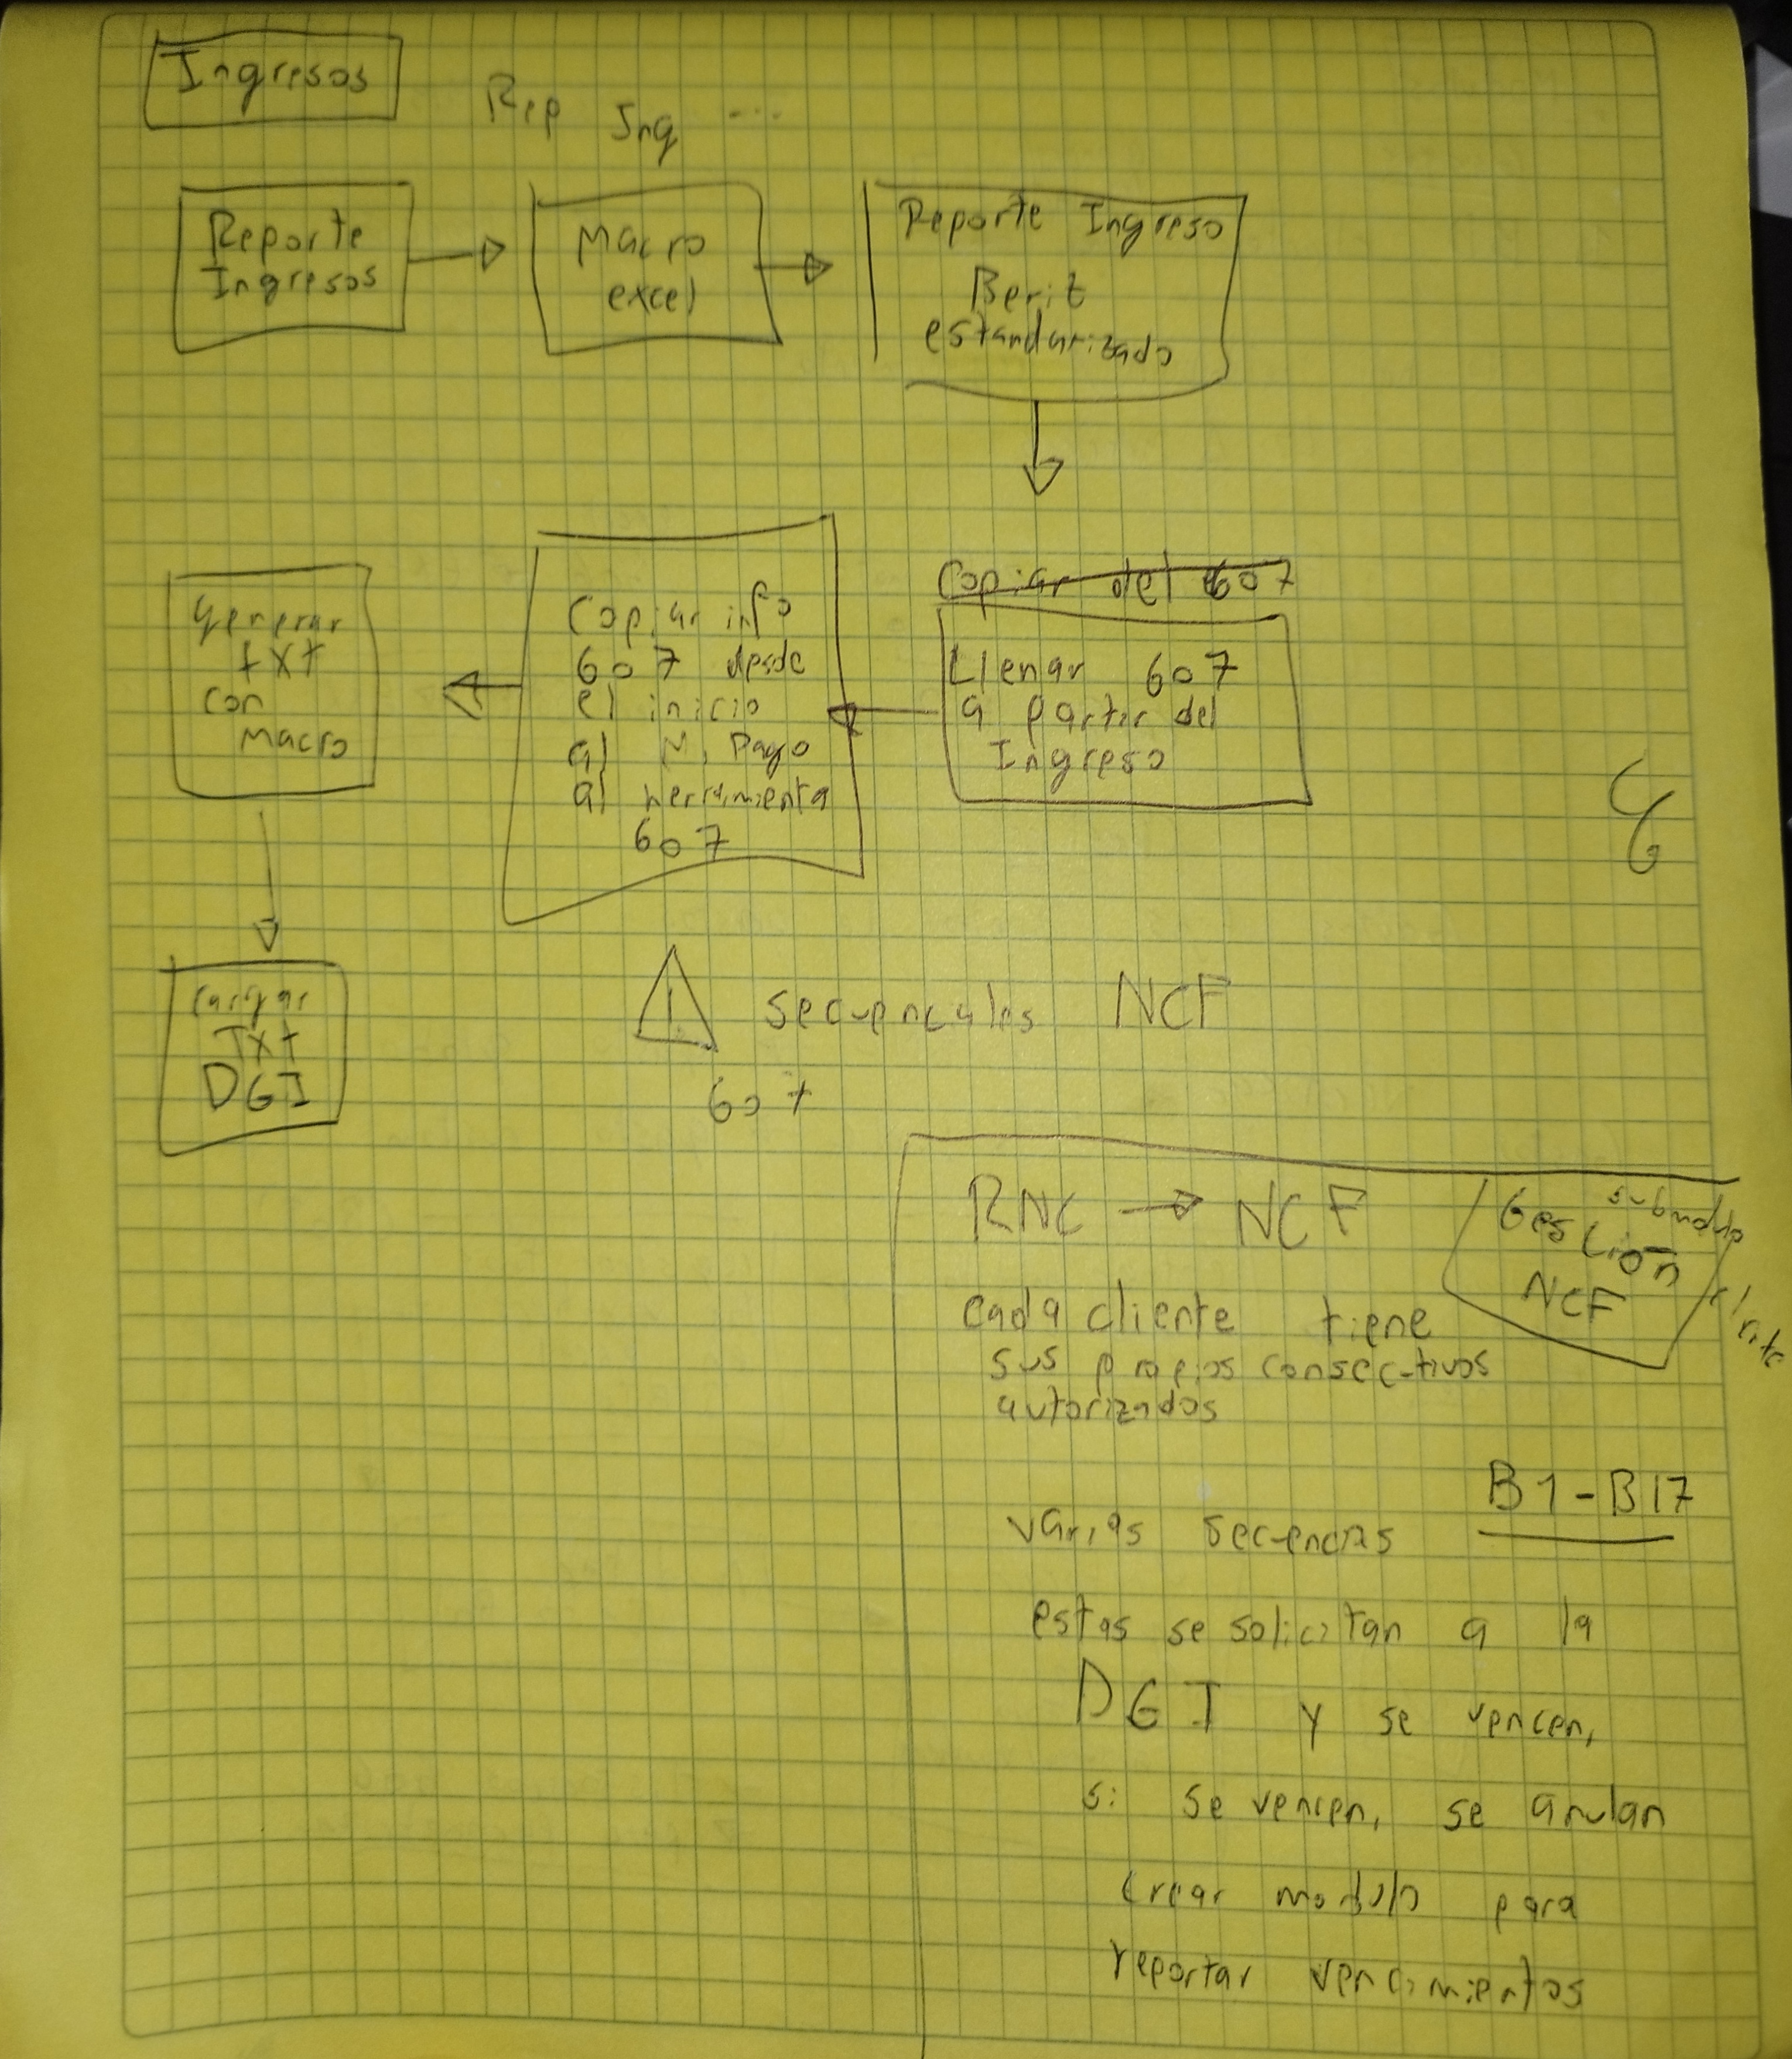 Ingresos
Rep Ing ...
Reporte
Ingresos
Macro
excel
Reporte Ingreso
Berit
estandarizado
Copiar del 607
Llenar 607
a partir del
Ingreso
Copiar info
607 desde
el inicio
al M. Pago
al herramienta
607
Generar
txt
con
Macro
Cargar
Txt
DGI
! secuenciales NCF
607
RNC → NCF
Gestion
NCF
submodulo
cada cliente tiene
sus propios consecutivos
autorizados
B1-B17
varias secuencias
estas se solicitan a la
DGI y se vencen,
si se vencen, se anulan
crear modulo para
reportar vencimientos